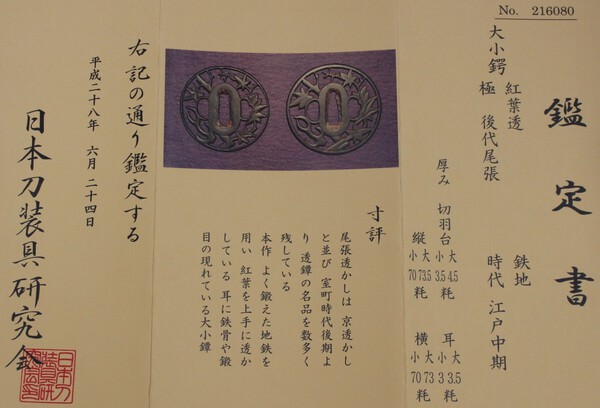 No. 216080
鑑定書
大小鍔
紅葉透 鉄地
極 後代尾張 時代 江戸中期
厚み 切羽台 大 4.5 小 3.5 耳 大 3.5 小 3 粍
縦 大 73.5 小 70 粍 横 大 73 小 70 粍
寸評
尾張透かしは 京透かし
と並び 室町時代後期よ
り 透鐔の名品を数多く
残している
本作 よく鍛えた地鉄を
用い 紅葉を上手に透か
している 耳に鉄骨や鍛
目の現れている大小鐔
右記の通り鑑定する
平成二十八年 六月 二十四日
日本刀装具研究会